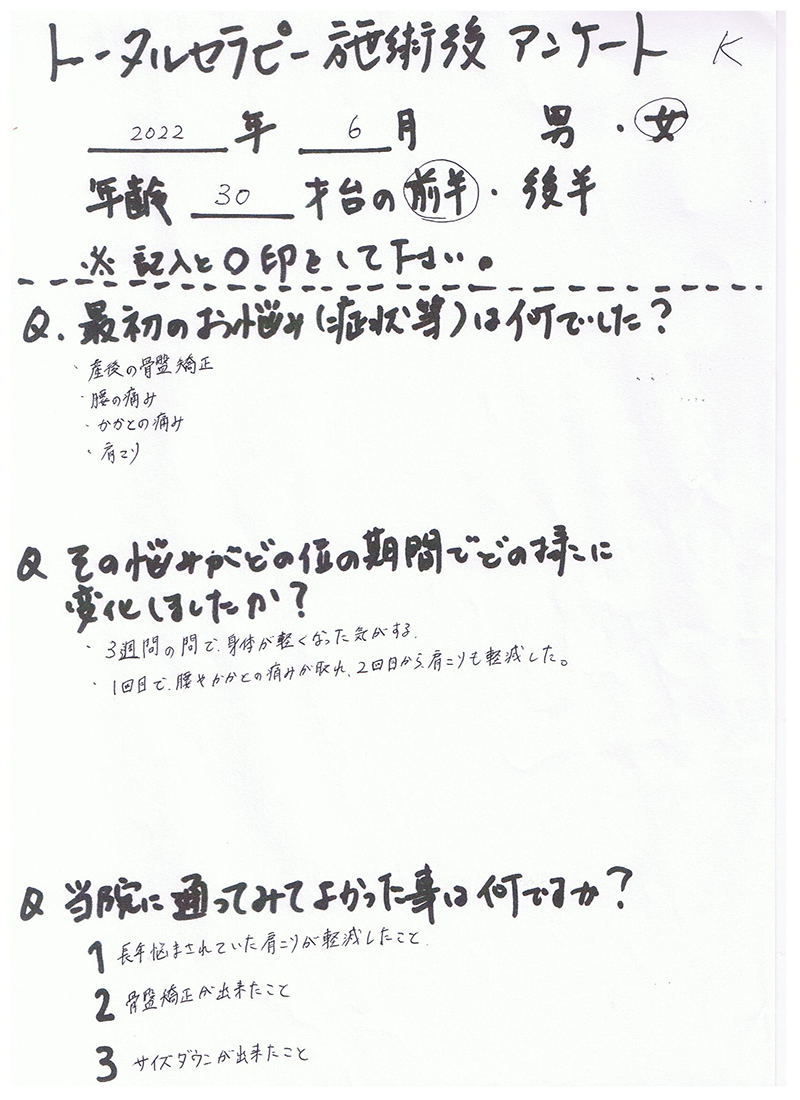 トータルセラピー施術後 アンケート K
2022 年 6 月 男・女
年齢 30 才台の 前半・後半
※記入と〇印をして下さい。
Q. 最初のお悩み(症状等)は何でした?
・産後の骨盤矯正
・腰の痛み
・かかとの痛み
・肩こり
Q その悩みがどの位の期間でどの様に
変化しましたか?
・3週間の間で、身体が軽くなった気がする.
・1回目で、腰やかかとの痛みが取れ、2回目から、肩こりも軽減した。
Q 当院に通ってみてよかった事は何ですか?
1 長年悩まされていた肩こりが軽減したこと.
2 骨盤矯正が出来たこと
3 サイズダウンが出来たこと